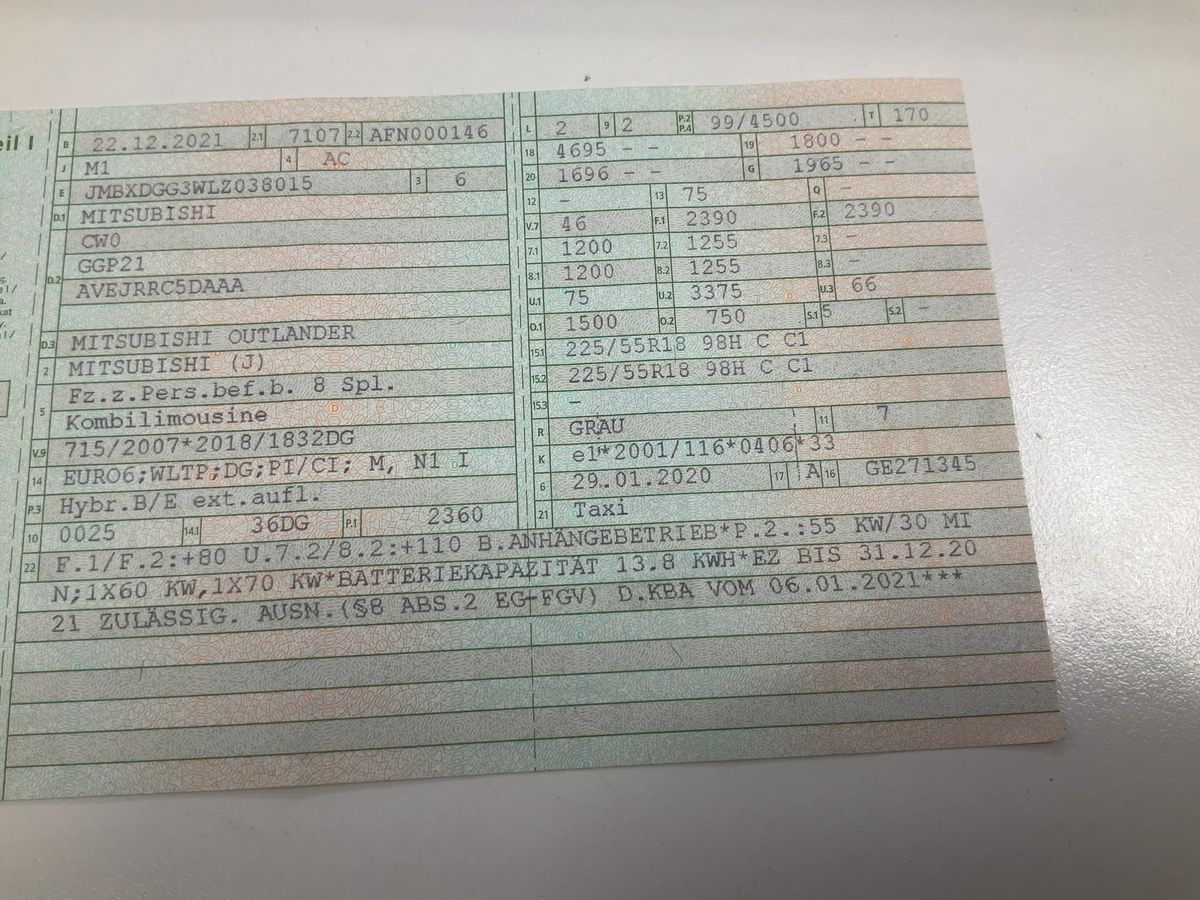 eil I
B 22.12.2021 2.1 7107 2.2 AFN000146
J M1 4 AC
E JMBXDGG3WLZ038015 3 6
D.1 MITSUBISHI
CW0
D.2 GGP21
AVEJRRC5DAAA
D.3 MITSUBISHI OUTLANDER
2 MITSUBISHI (J)
5 Fz.z.Pers.bef.b. 8 Spl.
Kombilimousine
V.9 715/2007*2018/1832DG
14 EURO6;WLTP;DG;PI/CI; M, N1 I
P.3 Hybr.B/E ext.aufl.
10 0025 14.1 36DG P.1 2360
L 2 9 2 P.2 P.4 99/4500 T 170
18 4695 - - 19 1800 - -
20 1696 - - G 1965 - -
12 - 13 75 Q -
V.7 46 F.1 2390 F.2 2390
7.1 1200 7.2 1255 7.3 -
8.1 1200 8.2 1255 8.3 -
U.1 75 U.2 3375 U.3 66
O.1 1500 O.2 750 S.1 5 S.2 -
15.1 225/55R18 98H C C1
15.2 225/55R18 98H C C1
15.3 -
R GRAU 11 7
K e1*2001/116*0406*33
6 29.01.2020 17 A 16 GE271345
21 Taxi
22 F.1/F.2:+80 U.7.2/8.2:+110 B.ANHÄNGEBETRIEB*P.2.:55 KW/30 MI
N;1X60 KW,1X70 KW*BATTERIEKAPAZITÄT 13.8 KWH*EZ BIS 31.12.20
21 ZULÄSSIG. AUSN.(§8 ABS.2 EG-FGV) D.KBA VOM 06.01.2021***